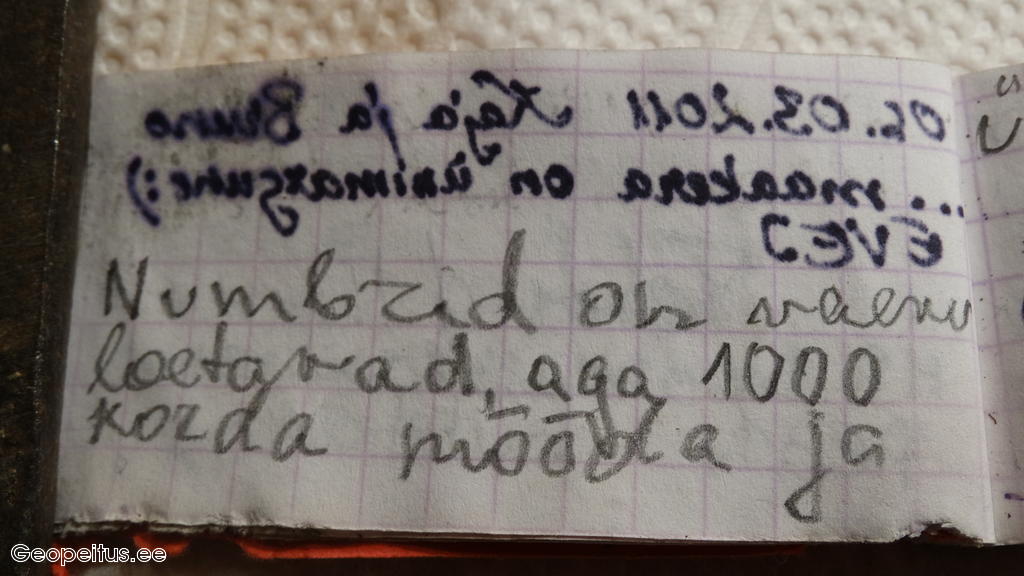 06.03.2011 Kaja ja Bruno
...maakera on :)
Numbrid on vaevu
loetavad, aga 1000
korda mõõda ja
Geopeitus.ee